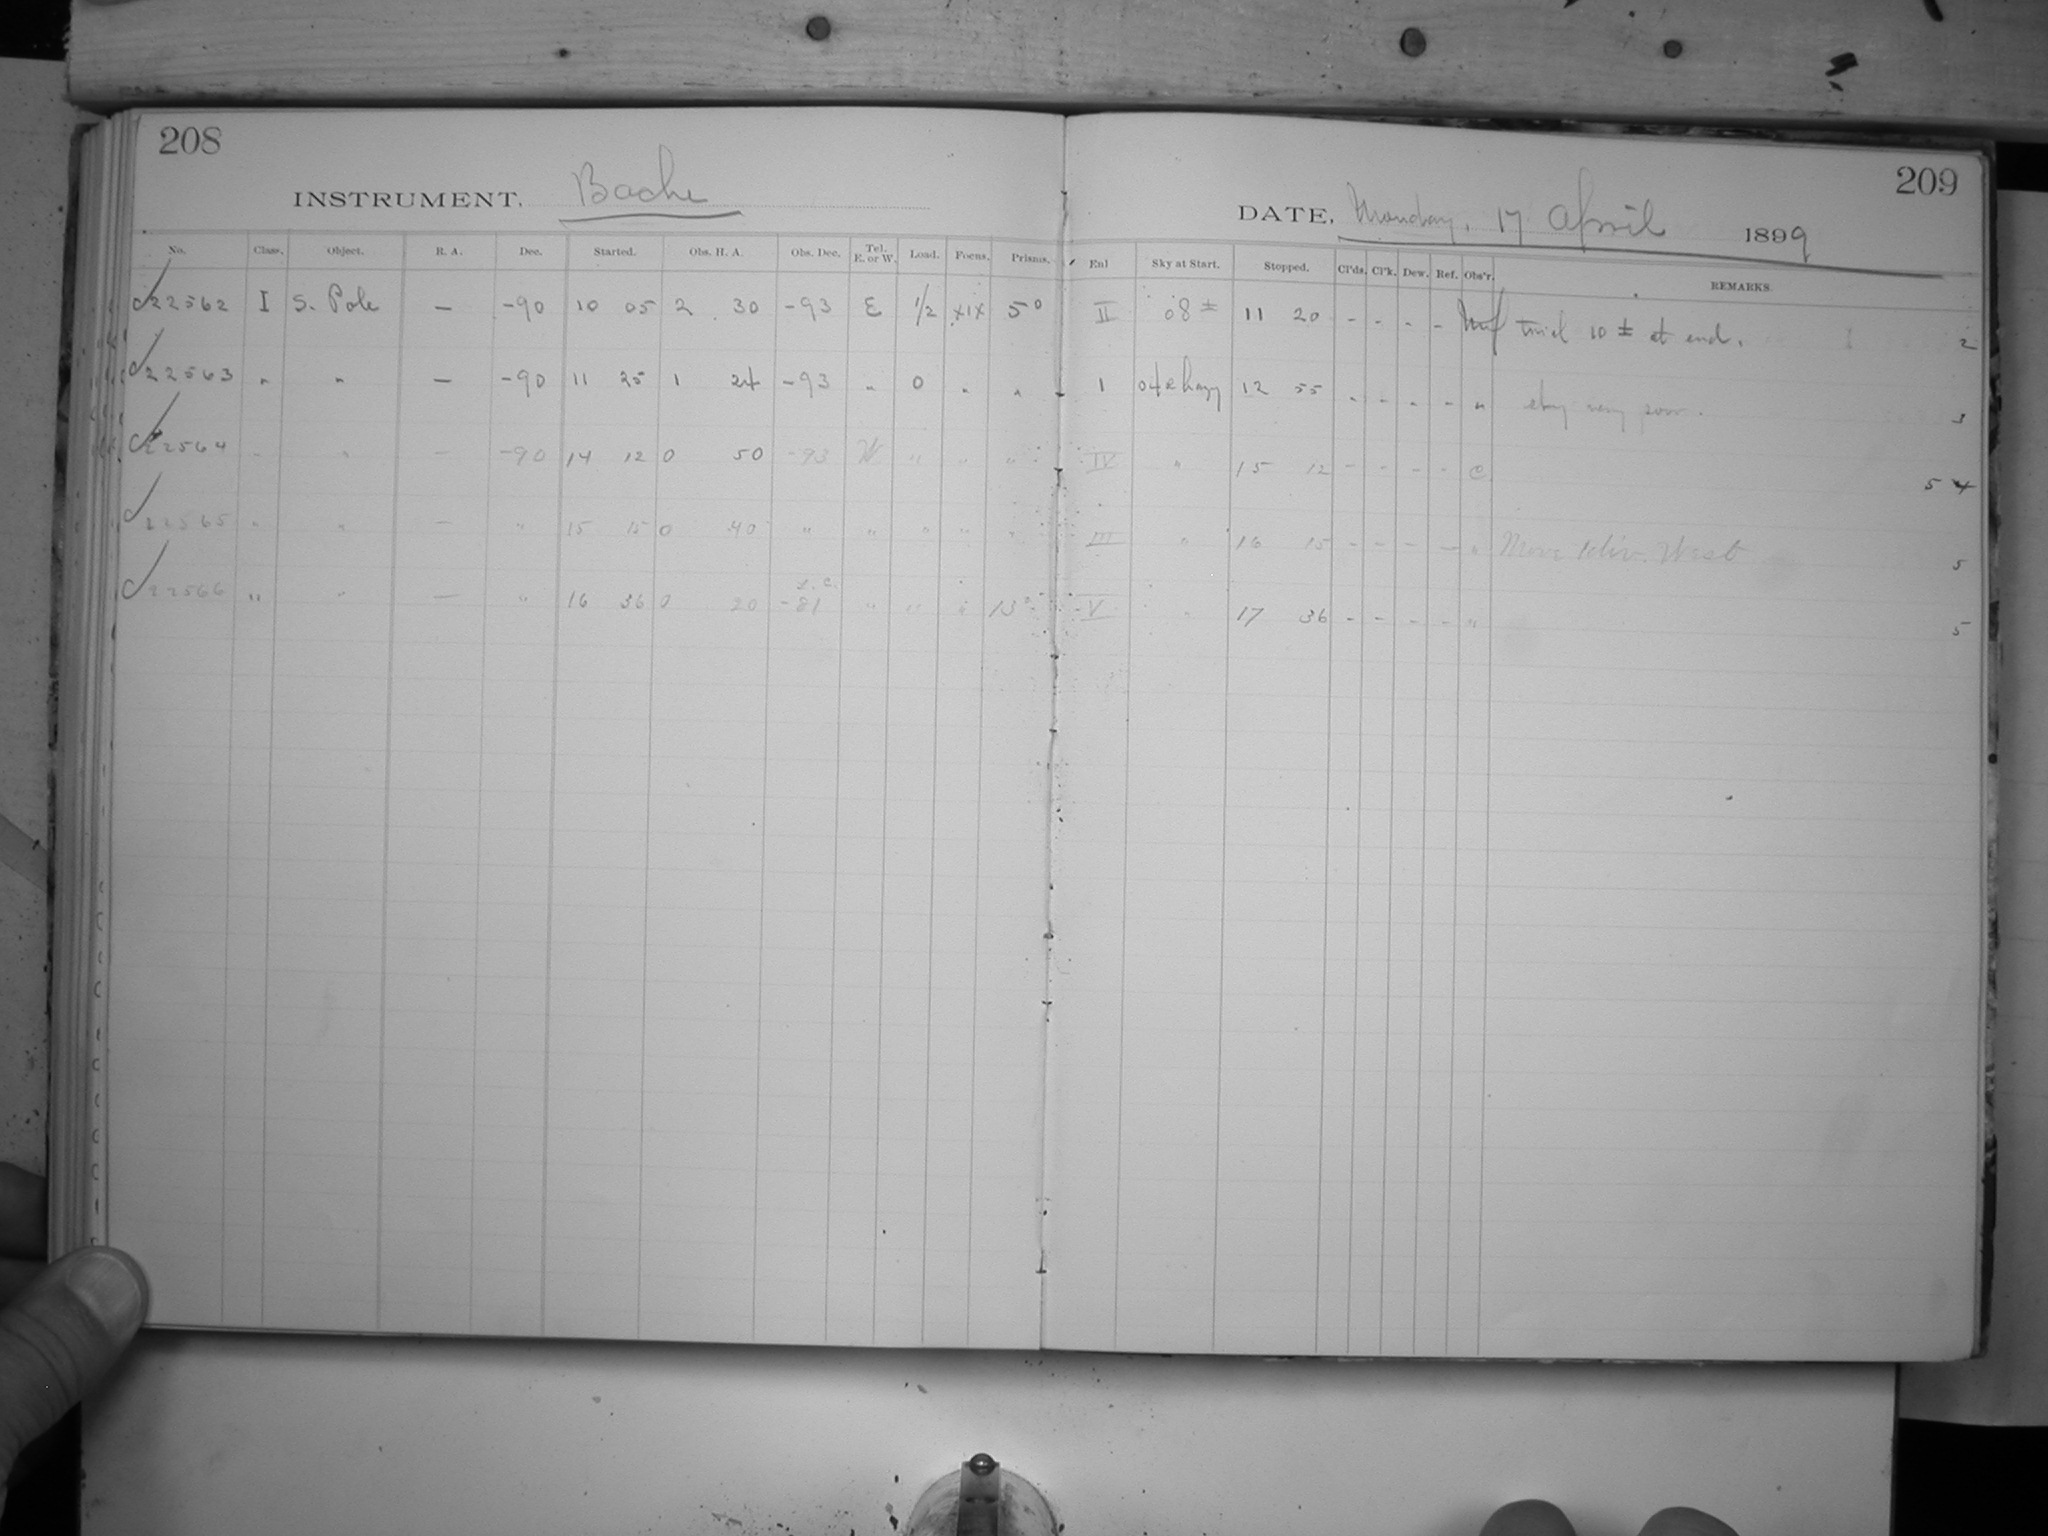 208
INSTRUMENT. Bache
No. Class. Object. R. A. Dec. Started. Obs. H. A. Obs. Dec. Tel. E. or W. Load. Focus. Prisms.
22562 I S. Pole — -90 10 05 2 30 -93 E 1/2 XIX 5°
22563 " " — -90 11 25 1 24 -93 " 0 " "
22564 " " — -90 14 12 0 50 -93 W " " "
22565 " " — " 15 15 0 40 " " " " "
22566 " " — " 16 36 0 20 L.C. -81 " " " 13°
209
DATE, Monday, 17 April 1899
Enl Sky at Start. Stopped. Cl'ds. Cl'k. Dew. Ref. Obs'r. REMARKS
II 08 ± 11 20 - - - - at end. 2
1 hazy 12 55 " - " - " sky very poor. 3
IV " 15 12 - - - - C 5 4
III " 16 15 - - - - " Move 1 div. West 5
V " 17 36 - - - - " 5